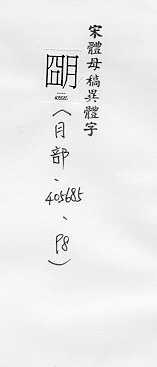 宋體母稿異體字
朙
405685
(月部、405685、P8)